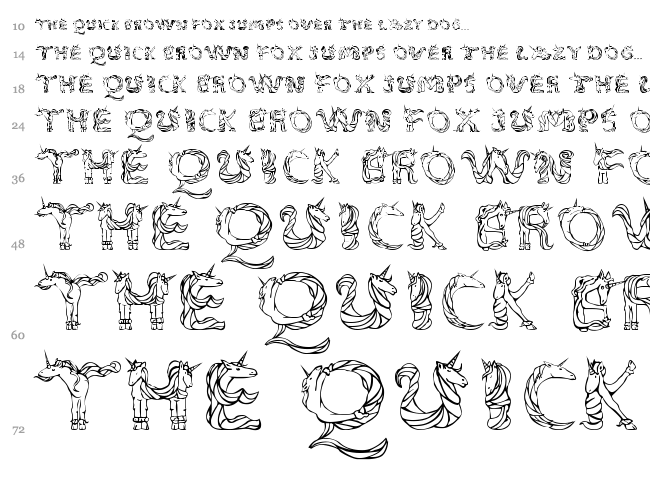 10 THE QUICK BROWN FOX JUMPS OVER THE LAZY DOG...
14 THE QUICK BROWN FOX JUMPS OVER THE LAZY DOG...
18 THE QUICK BROWN FOX JUMPS OVER THE L
24 THE QUICK BROWN FOX JUMPS O
36 THE QUICK BROWN FO
48 THE QUICK BROW
60 THE QUICK BR
72 THE QUICK